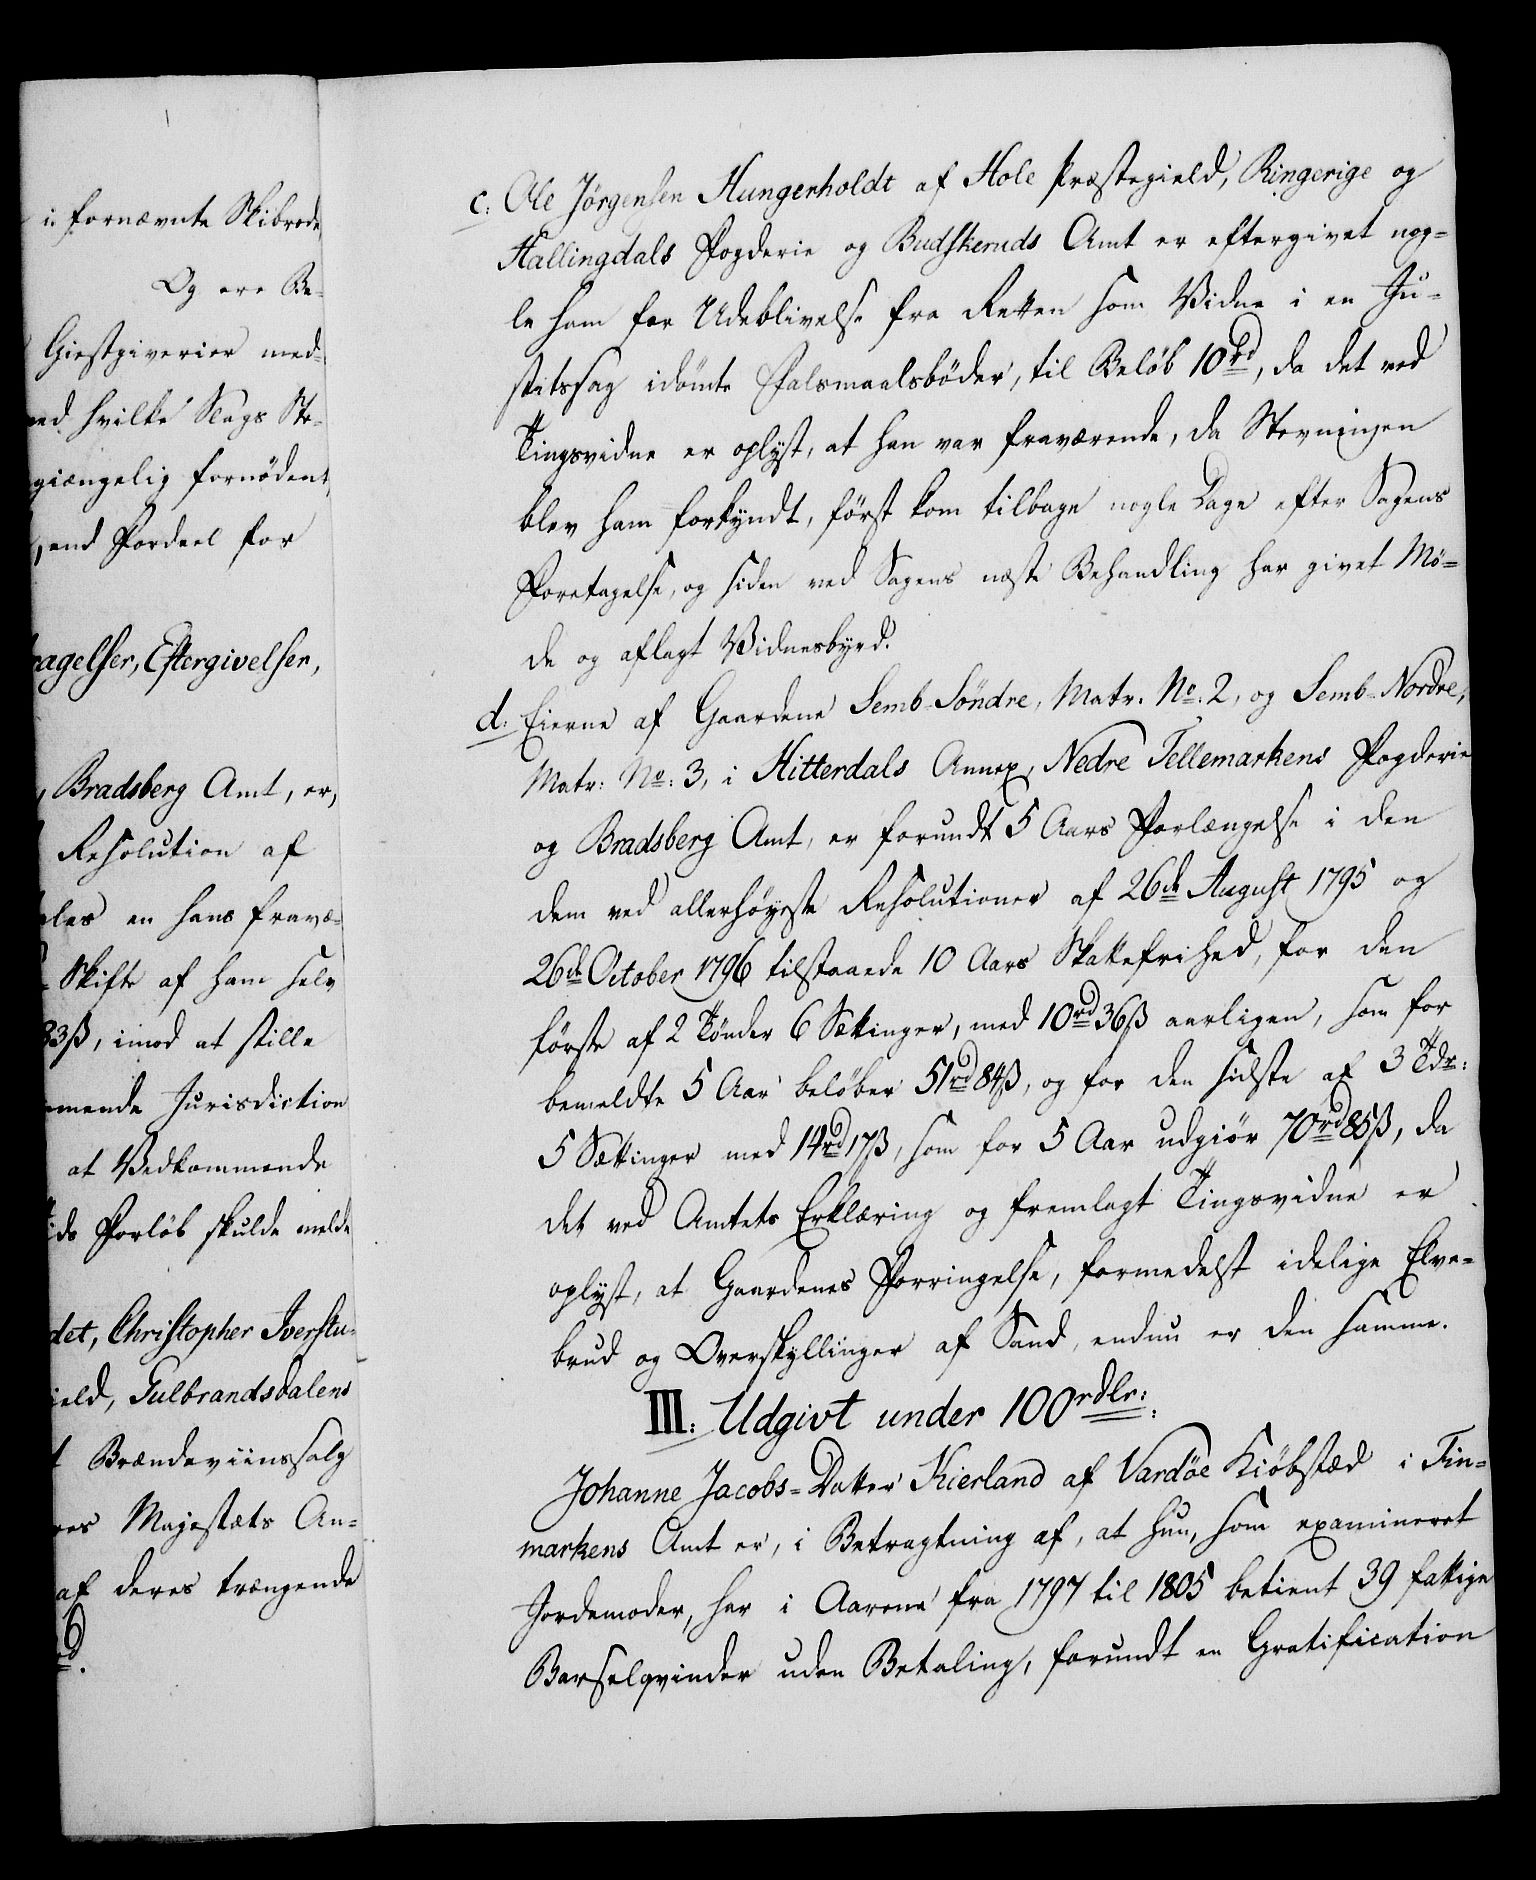 i fornævnte Skibrede
Og ere Be-
Giestgiverier med-
ed hvilke Slags Ste-
giængelig fornödent,
end Fordeel for
agelser, Eftergivelser,
Bradsberg Amt, er,
Resolution af
ales en hans fravæ-
Skifte af ham selv
83ß, imod at stille
mende Jurisdiction
at Vedkommende
ids Forløb skulde melde
det, Christopher Iverstu-
ield, Gulbrandsdalens
Brændeviinssalg
res Majestæts An-
af deres trængende
rd.
c: Ole Jörgensen Hungerholdt af Hole Præstegield, Ringerige og
Hallingdals Fogderie og Budskeruds Amt er eftergivet nog-
le ham for Udeblivelse fra Retten som Vidne i en Ju-
stitssag idömte Falsmaalsböder, til Belöb 10rd, da det ved
Tingsvidne er oplyst, at han var fraværende, da Stevningen
blev ham forkyndt, först kom tilbage nogle Dage efter Sagens
Foretagelse, og siden ved Sagens næste Behandling har givet Mö-
de og aflagt Vidnesbyrd.
d: Eierne af Gaardene Semb-Söndre, Matr. No. 2, og Semb-Nordre,
Matr: No: 3, i Hitterdals Annex, Nedre Tellemarkens Fogderie
og Bradsberg Amt, er forundt 5 Aars Forlængelse i den
dem ved allerhöyeste Resolutioner af 26de August 1795 og
26de October 1796 tilstaaede 10 Aars Skattefrihed, for den
förste af 2 Tönder 6 Sættinger, med 10rd 36ß aarligen, som for
bemeldte 5 Aar belöber 51rd 84ß, og for den sidste af 3 Tdr:
5 Sættinger med 14rd 17ß, som for 5 Aar udgiör 70rd 85ß, da
det ved Amtets Erklæring og fremlagt Tingsvidne er
oplyst, at Gaardenes Forringelse, formedelst idelige Elve-
brud og Overskyllinger af Sand, endnu er den samme.
III: Udgivt under 100rdlr:
Johanne Jacobs-Datter Kierland af Vardöe Kiöbstæd i Fin-
markens Amt er, i Betragtning af, at hun, som examineret
Jordemoder, har i Aarene fra 1797 til 1805 betient 39 fattige
Barselqvinder uden Betaling, forundt en Gratification